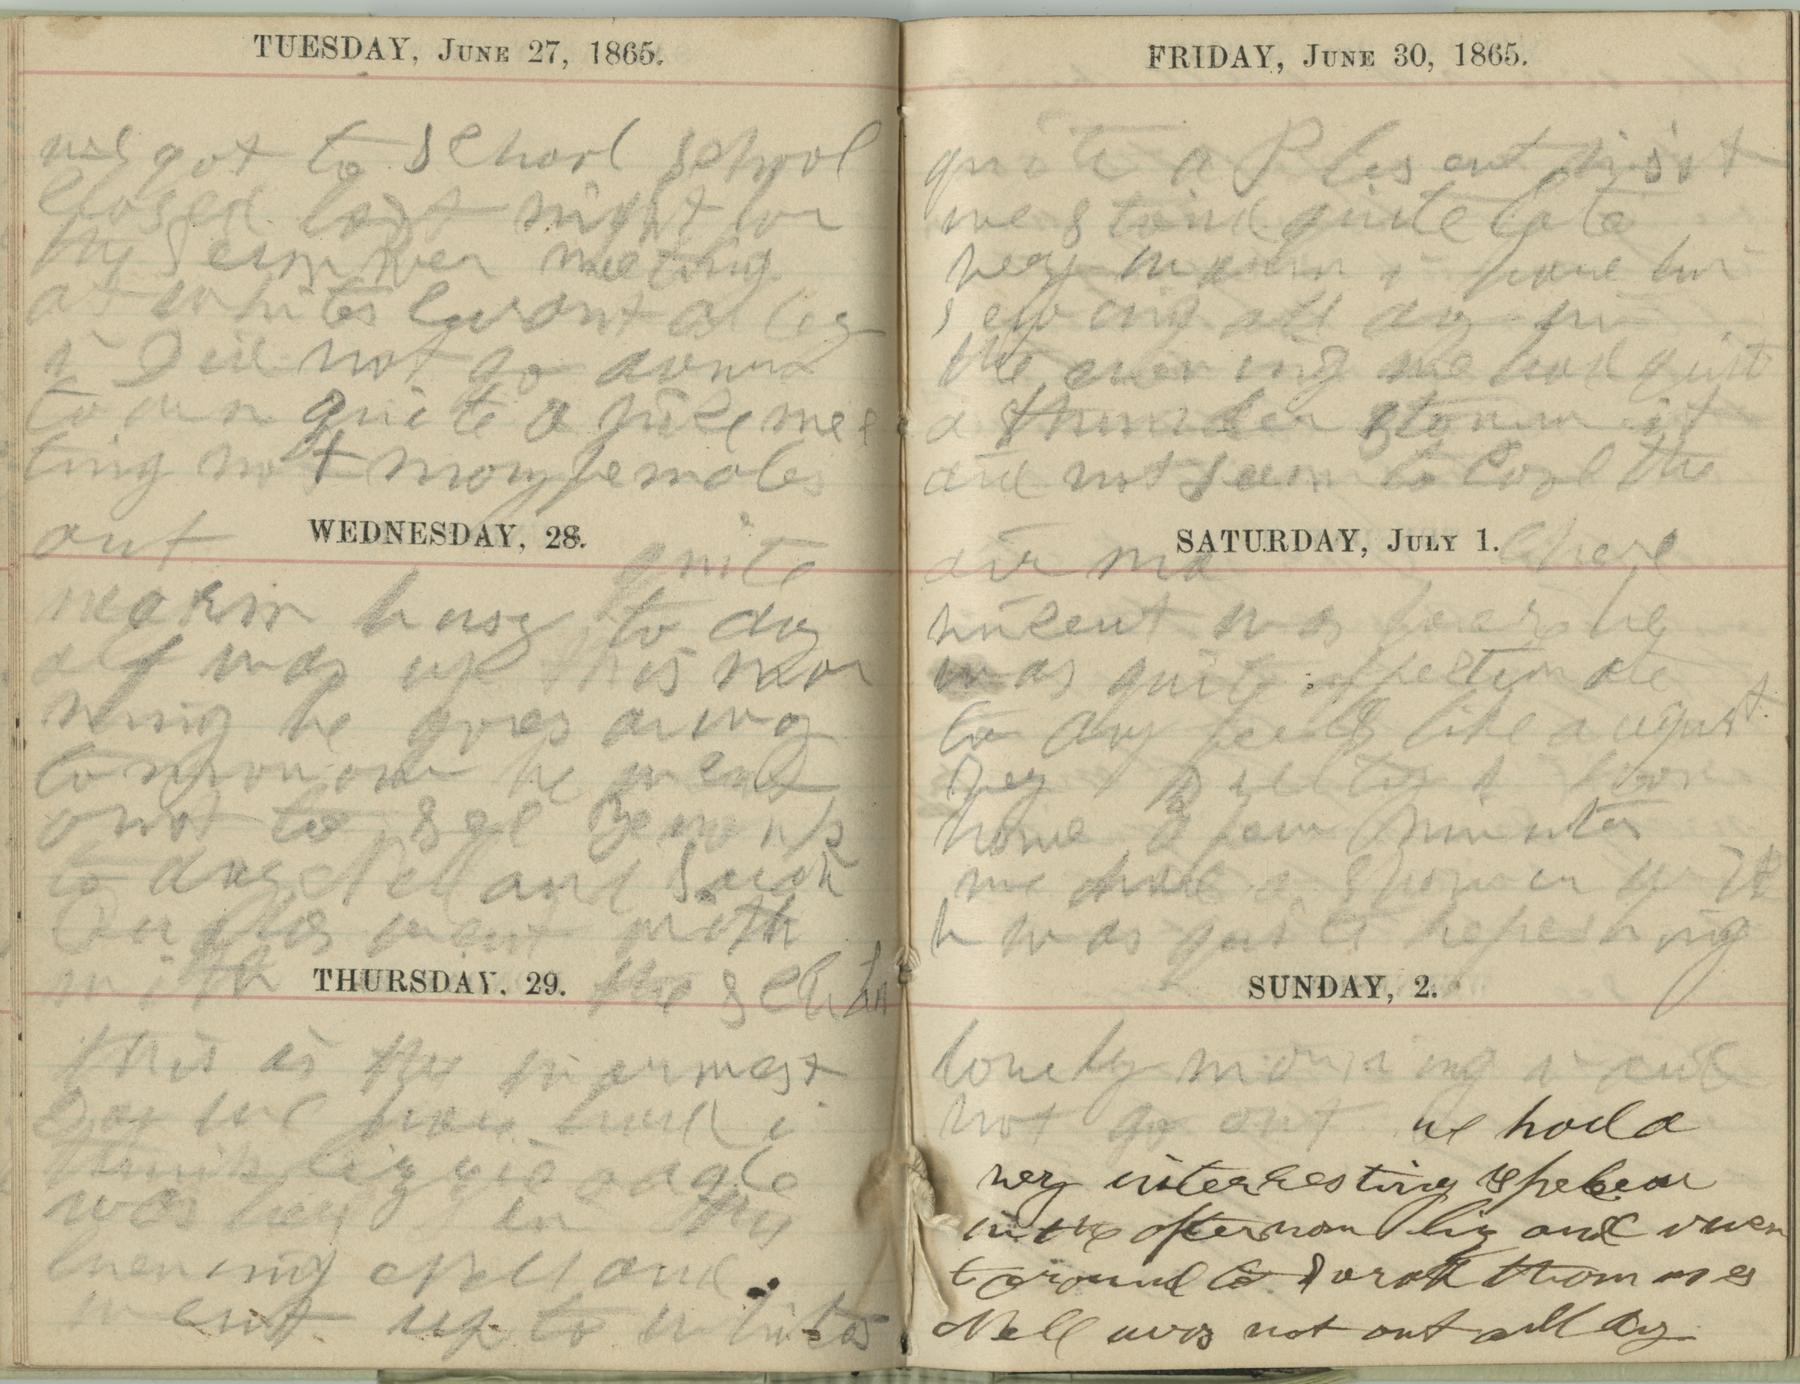 TUESDAY, JUNE 27, 1865.
got to School School
closed last night for
the Seummer meeting
at whites
i Did not go down
town quite a nice mee
ting not mony females
out
WEDNESDAY, 28.
quite
warm busy to day
alf was up this mor
ning he goes away
tomorrow he went
out to see
to day Nell and Sarah
Douglas went with
with the
THURSDAY. 29.
this is the warmest
Day we have had i
think lizzie
was hey in the
Evening Nell and
went up to whites
FRIDAY, JUNE 30, 1865.
quite a Plesent visit
we staid quite late
very warm i have bin
sewing all day in
the evening we had quit
a thunder storm it
did not seem to Cool the
air
SATURDAY, JULY 1.
vincent was here he
was quite affectionate
to day feells like august.
hey
home a few minutes
we had a Shower
h was quite refreshing
SUNDAY, 2.
lonely morning i did
not go out we had a
very interresting
in the afternoon liz and i wen
t around to Sarah thommases
Nell was not out all day